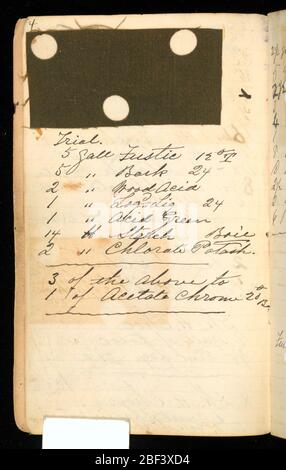 4
Trial.
5 Gall Fustic 12° T
5 " Bark 24
2 " Wood Acid
1 " Logwood 24
1 " Acid Green
14 lb Starch Boil
2 " Chlorate Potash.
3 of the above to
1 of Acetate Chrome 20°
alamy
Image ID: 2BF3XD4
www.alamy.com